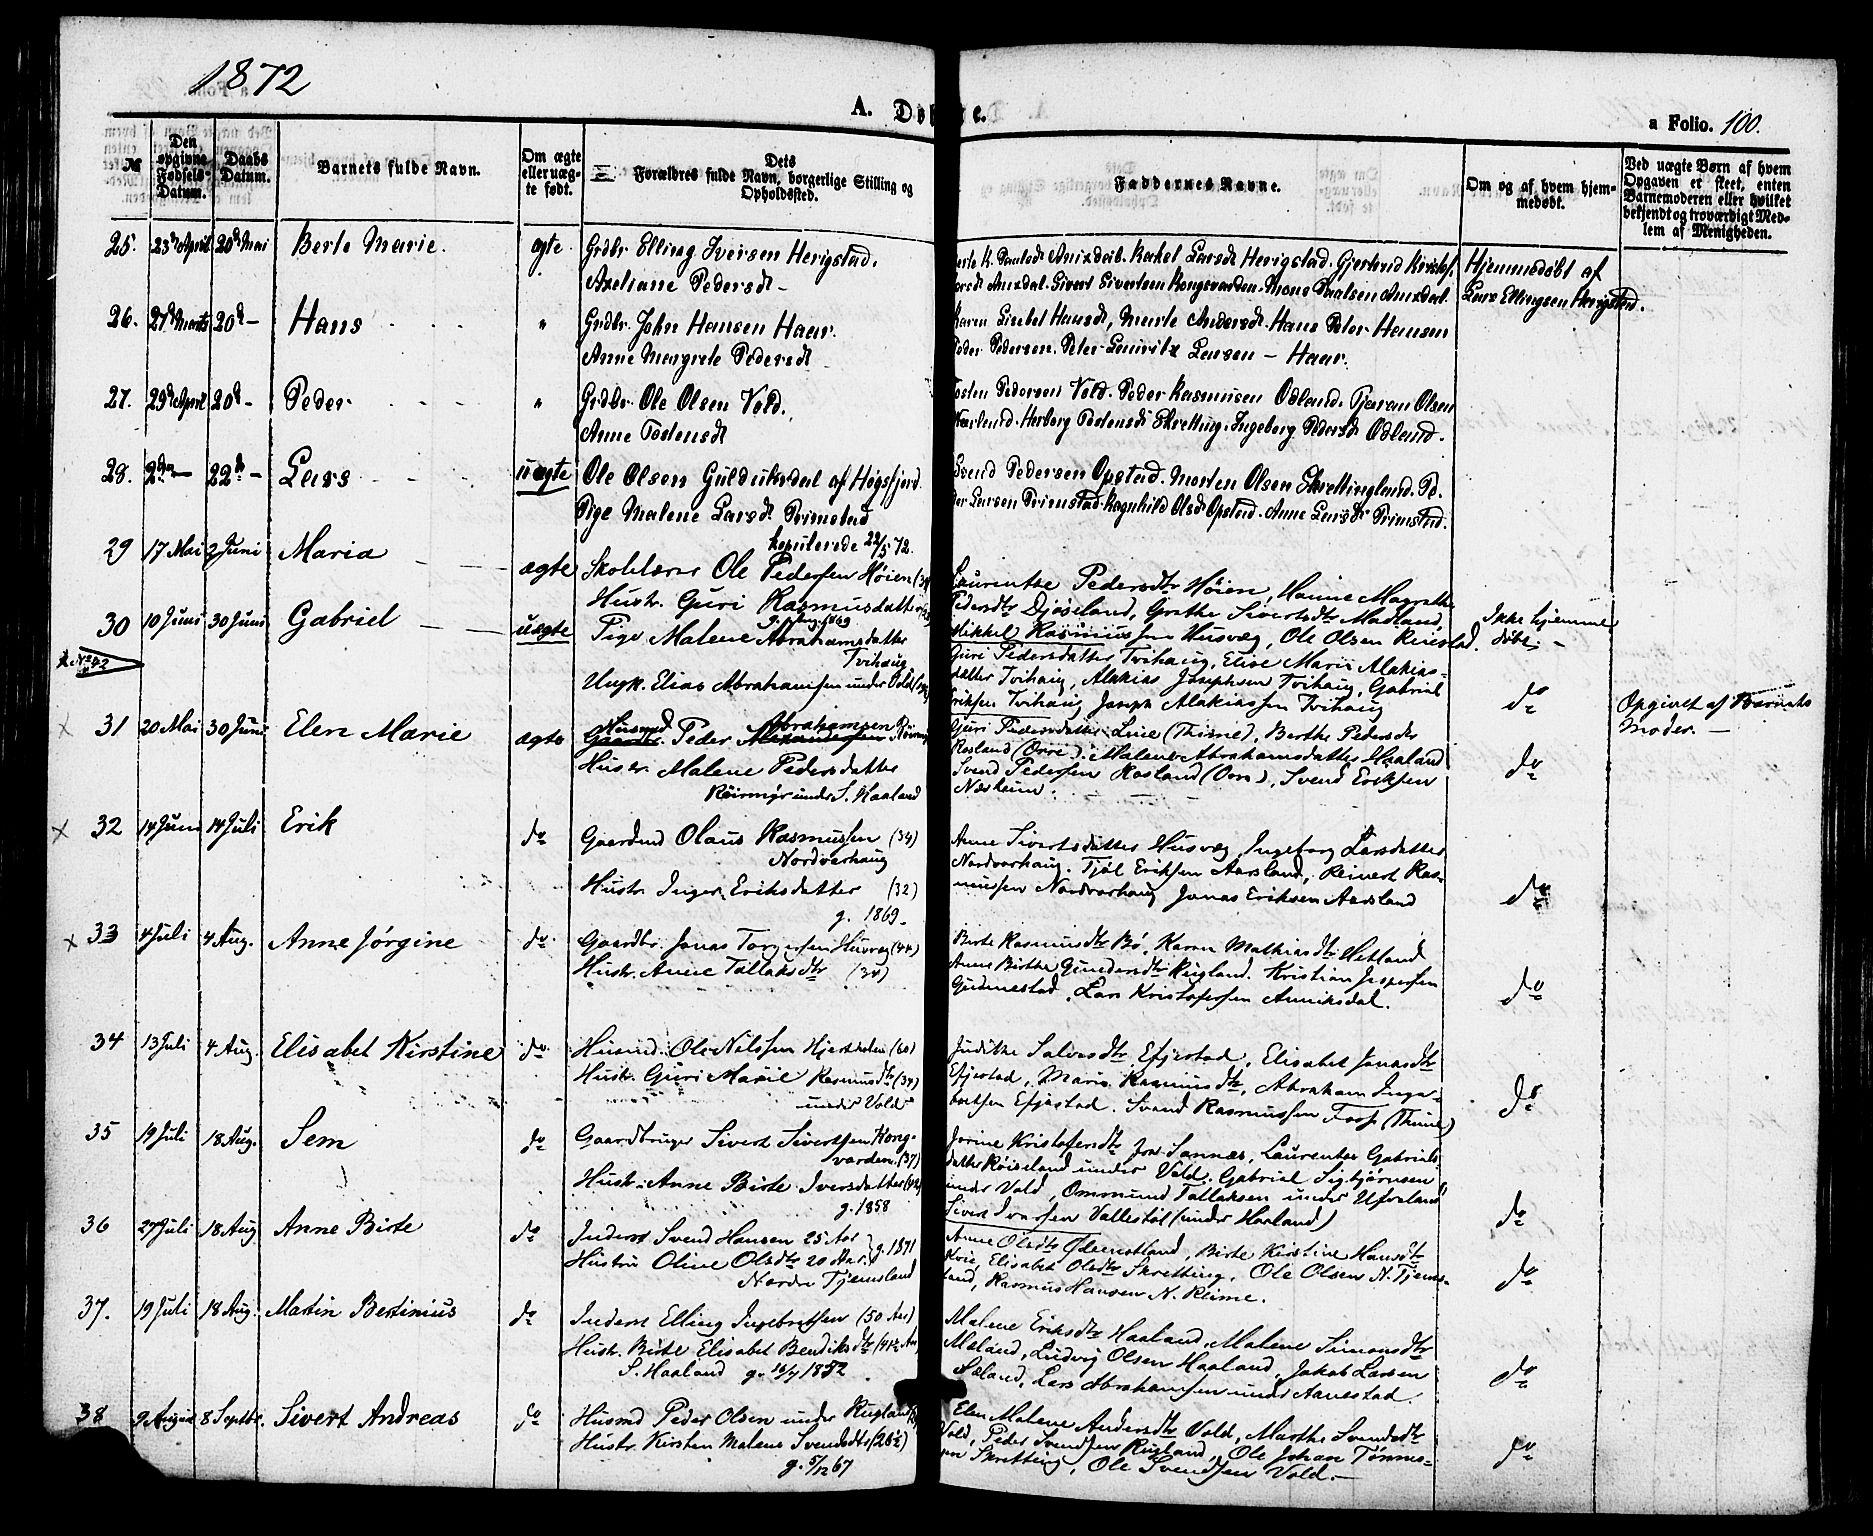 1872
A. Dø e.
a Folio. 100.
№
Den opgivne Fødsels-Datum.
Daabs Datum.
Barnets fulde Navn.
Om ægte eller uægte født.
Dets Forældres fulde Navn, borgerlige Stilling og Opholdssted.
Faddernes Navne.
Om og af hvem hjemmedøbt.
Ved uægte Børn af hvem Opgaven er skeet, enten Barnemoderen eller hvilket bekjendt og troværdigt Medlem af Menigheden.
25. 23de April 20de Mai Berte Marie. ægte Grdbr Elling Iversen Herigstad.
Axeliane Pedersdt
Rakel Larsdt Herigstad. Gjertrud
Sivert Sivertsen Kongsvarden. Mons Paulsen
Hjemmedøbt af
Lars Ellingsen Herigstad.
26. 27de Marts 20de – Hans " Grdbr. John Hansen Haar.
Anne Margrete Pedersdt
Karen Lisebet Hansdt, Marte Andersdt. Hans Peter Hansen
Peder Pedersen. Peter Lauritz Larsen – Haar.
27. 29de April 20de – Peder " Grdbr. Ole Olsen Vold.
Anne Tostensdt
Tosten Pedersen Vold. Peder Rasmusen Ødland. Tjøran Olsen
Herborg Tostensdt Skretting. Ingeborg Pedersdt Ødland.
28. 2den – 22de – Lars uægte Ole Olsen af Høgsfjord
Pige Malene Larsdt Primstad
kopulerede 22/5 72.
Svend Pedersen Opstad. Morten Olsen Skrettingland. Pe-
der Larsen Primstad. Ragnhild Olsdt Opstad. Anne Larsdt Primstad.
29 17 Mai 2 Juni Maria ægte Skolelærer Ole Pedersen Høien
Hustr. Guri Rasmusdatter
1869
Laurentse Pedersdtr Høien, Hanne Magrethe
Pedersdtr Djøseland, Grethe Sivertsdtr Madland,
Mikkel Rasmussen Husvæg, Ole Olsen Reiestad.
Ikke hjemme
døbt –
30 10 Juni 30 Juni Gabriel uægte Pige Malene Abrahamsdatter
Tvihaug
Ungk. Elias Abrahamsen under Vold
Guri Pedersdatter Tvihaug, Elise Marie Malakias-
datter Tvihaug, Malakias Josephsen Tvihaug, Gabriel
Eriksen Tvihaug Joseph Malakiassen Tvihaug
do
Opgivet af Barnets
Moder. –
31 20 Mai 30 Juni Elen Marie ægte Husmd Peder Abrahamsen
Hustr. Malene Pedersdatter
Røirmyr under S. Haaland
Guri Pedersdatter Line (Thime), Berthe Pedersdtr
Rosland (Orre), Malene Abrahamsdatter Haaland
Svend Pedersen Rosland (Orre), Svend Eriksen
Næsheim.
do
32 14 Juni 14 Juli Erik do Gaardmd Olaus Rasmussen (34)
Nordvarhaug
Hustr. Inger Eriksdatter (32)
g. 1869 –
Anne Sivertsdatter Husvæg, Ingeborg Larsdatter
Nordvarhaug. Tjøl Eriksen Aarsland, Reinert Ras-
mussen Nordvarhaug Jonas Eriksen Aarsland
do
33 4 Juli 4 Aug. Anne Jørgine do Gaardbr. Jonas Torgersen Husveg (44)
Hustr. Anne Tollaksdtr (34)
Berte Rasmusdtr Bø, Karen Mathiasdtr Hetland
Anne Birthe Gundersdtr Rugland. Kristian Jespersen
Gudmestad, Lars Kristofersen Anniksdal.
do
34 13 Juli 4 Aug. Elisabet Kirstine do Husmd. Ole Nilssen (60)
Hustr. Guri Marie Rasmusdtr (34)
under Vold
Judithe Salvesdtr Efjestad, Elisabet Jonasdtr
Efjestad, Marie Rasmusdtr, Abraham Inge-
bretsen Efjestad. Svend Rasmussen Foss (Thime)
do
35 19 Juli 18 Aug. Sem do Gaardbruger Sivert Sivertsen Kongs-
varden. (37)
Hustr. Anne Birte Iversdatter
g. 1858
Jorine Kristofersdtr Sannæs, Laurentse Gabriels-
datter Røiseland under Vold, Gabriel Sigbjørnsen
under Vold, Ommund Tollaksen under Ufsaland
Sivert Iversen Vallestøl (under Haaland)
do
36 27 Juli 18 Aug Anne Birte do Inderst Svend Hansen 25 Aar
Hustru Oline Olsdtr 20 Aar. } g. 1871
Nordre Tjemsland
Anne Olsdtr, Birte Kirstine Hansdtr
Kvie, Elisabet Olsdtr Skretting, Ole Olsen N. Tjems-
land, Rasmus Hansen N. Reime.
do
37. 19 Juli 18 Aug. Martin Bertinius do Inderst Elling Ingebretsen (50 Aar)
Hustr. Birte Elisabet Bendiksdtr
S. Haaland g. 16/7 1852
Malene Eriksdtr Haaland, Malene Simonsdtr
Maland, Ludvig Olsen Haaland, Jakob Larsen
Lars Abrahamsen under Aanestad.
do
38 9 August 8 Septbr. Sivert Andreas do Husmd Peder Olsen under Rugland
Hustr. Kirsten Malene Svendsdtr (26½)
g. 5/12 67
Elen Malene Andersdtr Vold, Marthe Svendsdtr
Vold, Peder Svendsen Rugland, Ole Johan Tønnes-
sen Skretting, Ole Svendsen Vold. –
do